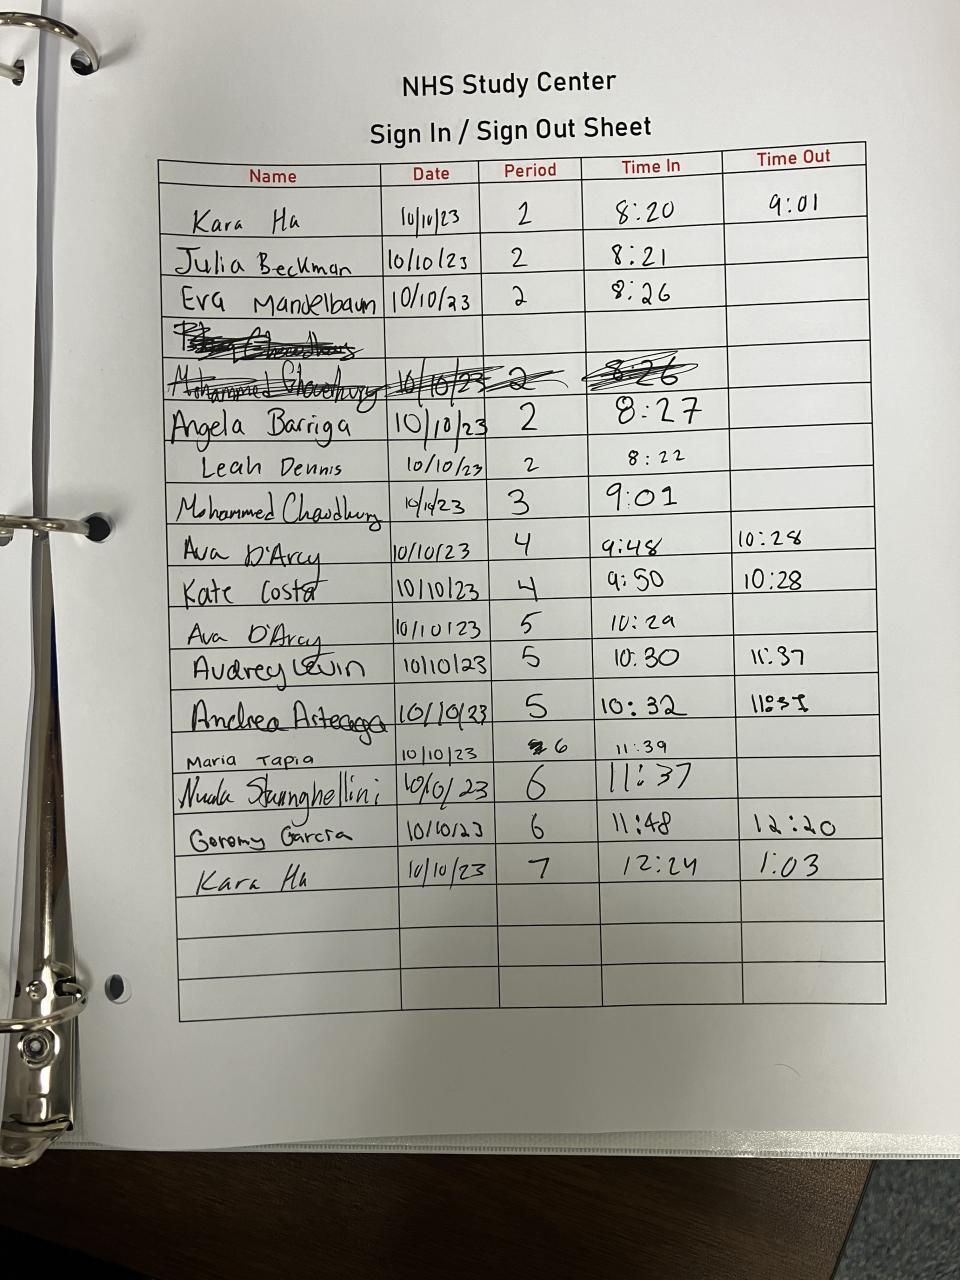 NHS Study Center
Sign In / Sign Out Sheet
Name Date Period Time In Time Out
Kara Ha 10/10/23 2 8:20 9:01
Julia Beckman 10/10/23 2 8:21
Eva Mandelbaum 10/10/23 2 8:26
Mohammed Chowdhury 10/10/23 2 8:26
Angela Barriga 10/10/23 2 8:27
Leah Dennis 10/10/23 2 8:22
Mohammed Chowdhury 10/10/23 3 9:01
Ava D'Arcy 10/10/23 4 9:48 10:28
Kate Costa 10/10/23 4 9:50 10:28
Ava D'Arcy 10/10/23 5 10:29
Audrey Levin 10/10/23 5 10:30 11:37
Andrea Arteaga 10/10/23 5 10:32
Maria Tapia 10/10/23 6 11:39
10/10/23 6 11:37
Garcia 10/10/23 6 11:48 12:20
Kara Ha 10/10/23 7 12:24 1:03